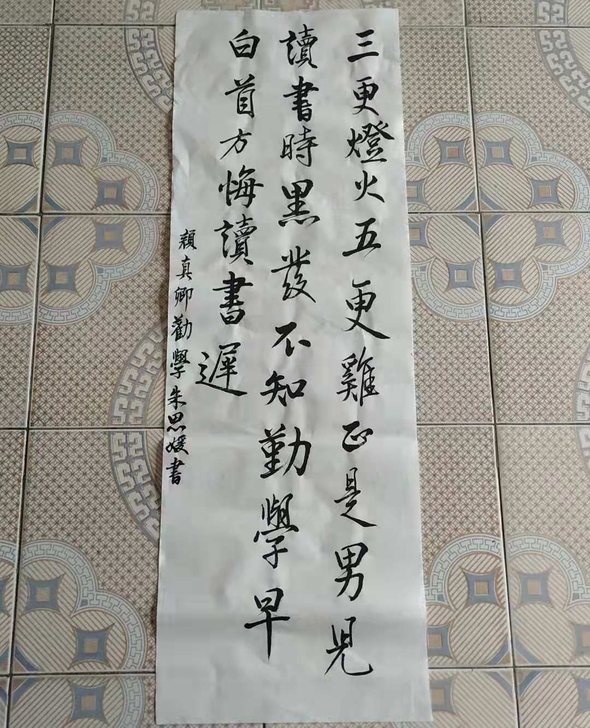 三更燈火五更雞正是男兒
讀書時黑發不知勤學早
白首方悔讀書遲
顏真卿勸學朱思媛書